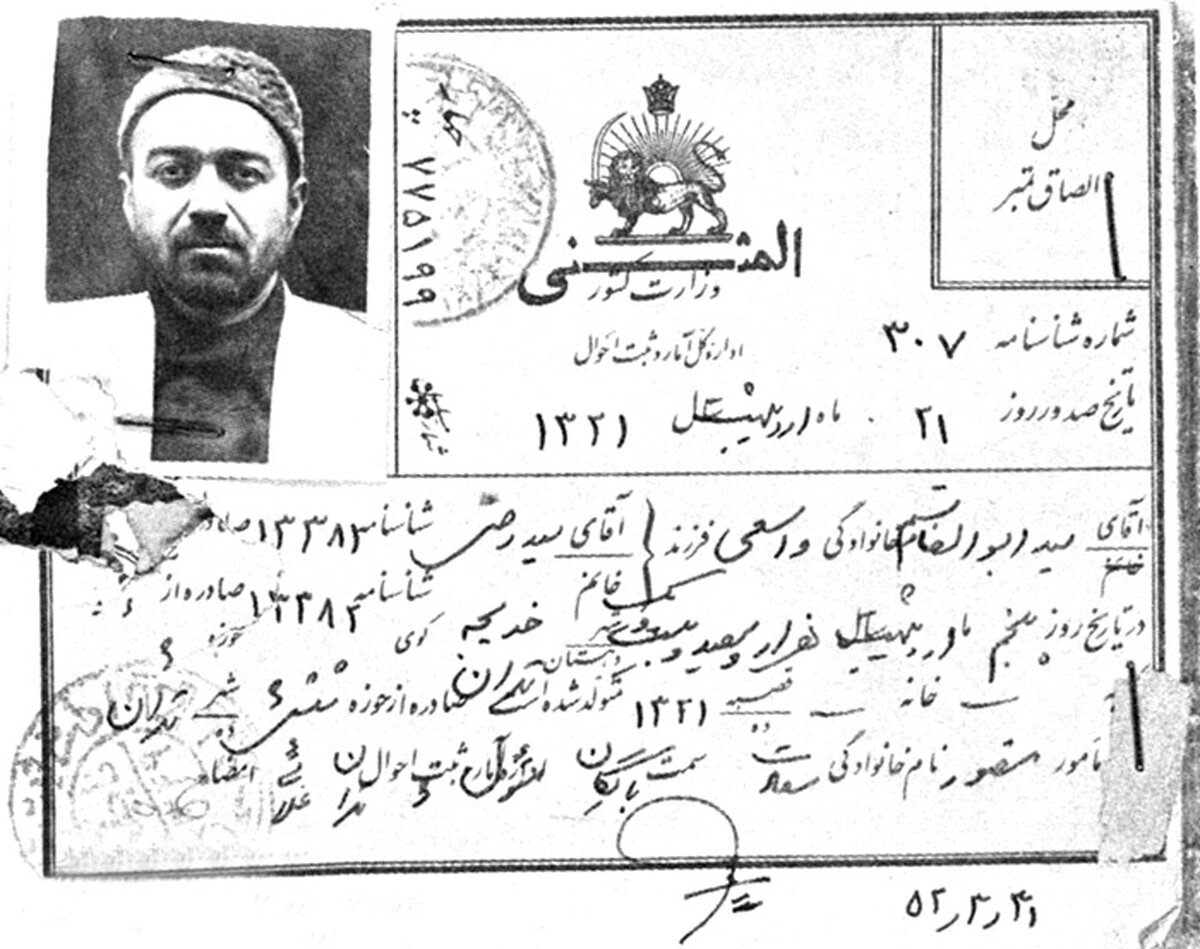 محل
الصاق تمبر
المثنی
وزارت کشور
اداره کل آمار و ثبت احوال
۷۷۵۱۹۹
شماره شناسنامه ۳۰۷
تاریخ صدور روز ۲۱ ماه اردیبهشت ۱۳۲۱
آقای خانم سید ابوالقاسم نام خانوادگی واسعی فرزند آقای سید رضی شناسنامه ۱۳۳۸۳ صادره
خانم شناسنامه ۱۳۳۸۲ صادره از
در تاریخ روز پنجم ماه اردیبهشت هزار و سیصد و بیست و شهر دهستان خدیجه کوی حوزه
خانه قصبه ده ۱۳۲۱ متولد شده است تهران صادره از حوزه شش شهر ده تهران
مأمور منصور نام خانوادگی سعادت سمت بایگان اداره آمار و ثبت احوال تهران امضاء
۵۲٫۳٫۳۱